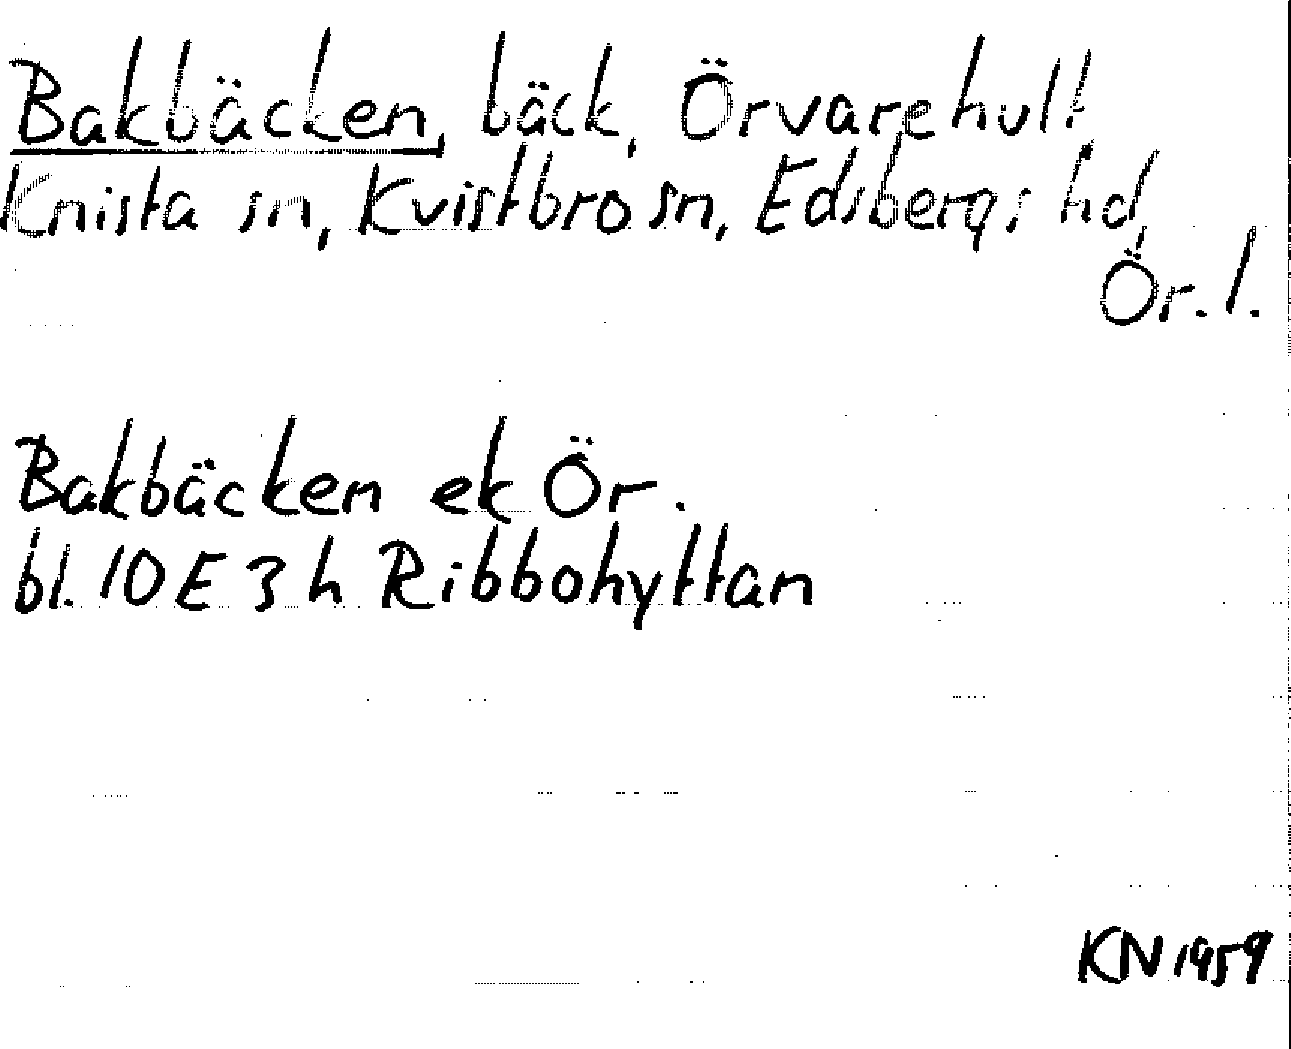 Bakbäcken, bäck, Örvarehult
Knista sn, Kvistbro sn, Edsbergs hd,
Ör. l.
Bakbäcken ek Ör.
bl. 10 E 3 h Ribbohyttan
KN 1959